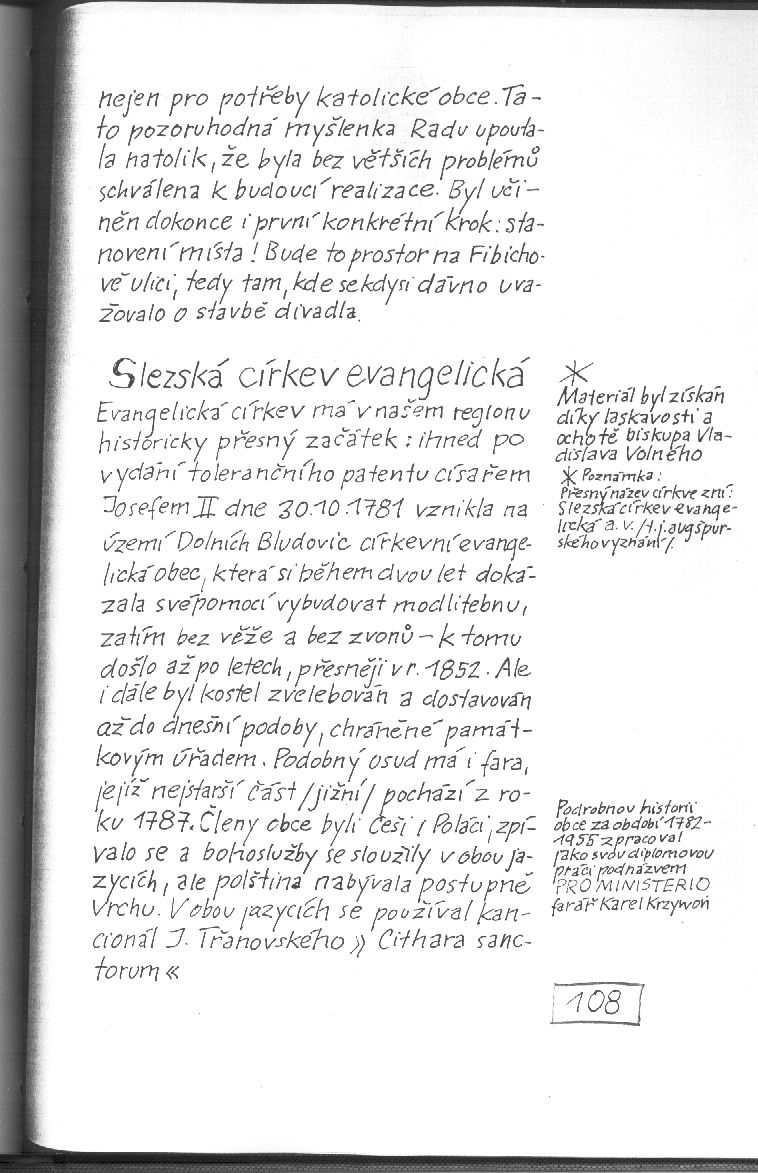 nejen pro potřeby katolické obce. Ta-
to pozoruhodná myšlenka Radu upouta-
la natolik, že byla bez větších problémů
schválena k budoucí realizace. Byl uči-
něn dokonce i první konkrétní krok: sta-
novení místa! Bude to prostor na Fibicho-
vě ulici, tedy tam, kde se kdysi dávno uva-
žovalo o stavbě divadla.
Slezská církev evangelická
Evangelická církev má v našem regionu
historicky přesný začátek: ihned po
vydání tolerančního patentu císařem
Josefem II dne 30.10.1781 vznikla na
území Dolních Bludovic církevní evange-
lická obec, která si během dvou let doká-
zala svépomocí vybudovat modlitebnu,
zatím bez věže a bez zvonů – k tomu
došlo až po letech, přesněji v r. 1852. Ale
i dále byl kostel zvelebován a dostavován
až do dnešní podoby, chráněné památ-
kovým úřadem. Podobný osud má i fara,
jejíž nejstarší část /jižní/ pochází z ro-
ku 1787. Členy obce byli Češi i Poláci, zpí-
valo se a bohoslužby se sloužily v obou ja-
zycích, ale polština nabývala postupně
vrchu. V obou jazycích se používal kan-
cionál J. Třanovského » Cithara sanc-
torum «
*
Materiál byl získán
díky laskavosti a
ochotě biskupa Vla-
dislava Volného
* Poznámka:
Přesný název církve zní:
Slezská církev evange-
lická a. v. /t.j. augšpur-
ského vyznání/.
Podrobnou historii
obce za období 1782-
1955 zpracoval
jako svou diplomovou
práci pod názvem
PRO MINISTERIO
farář Karel Krzywoń
108